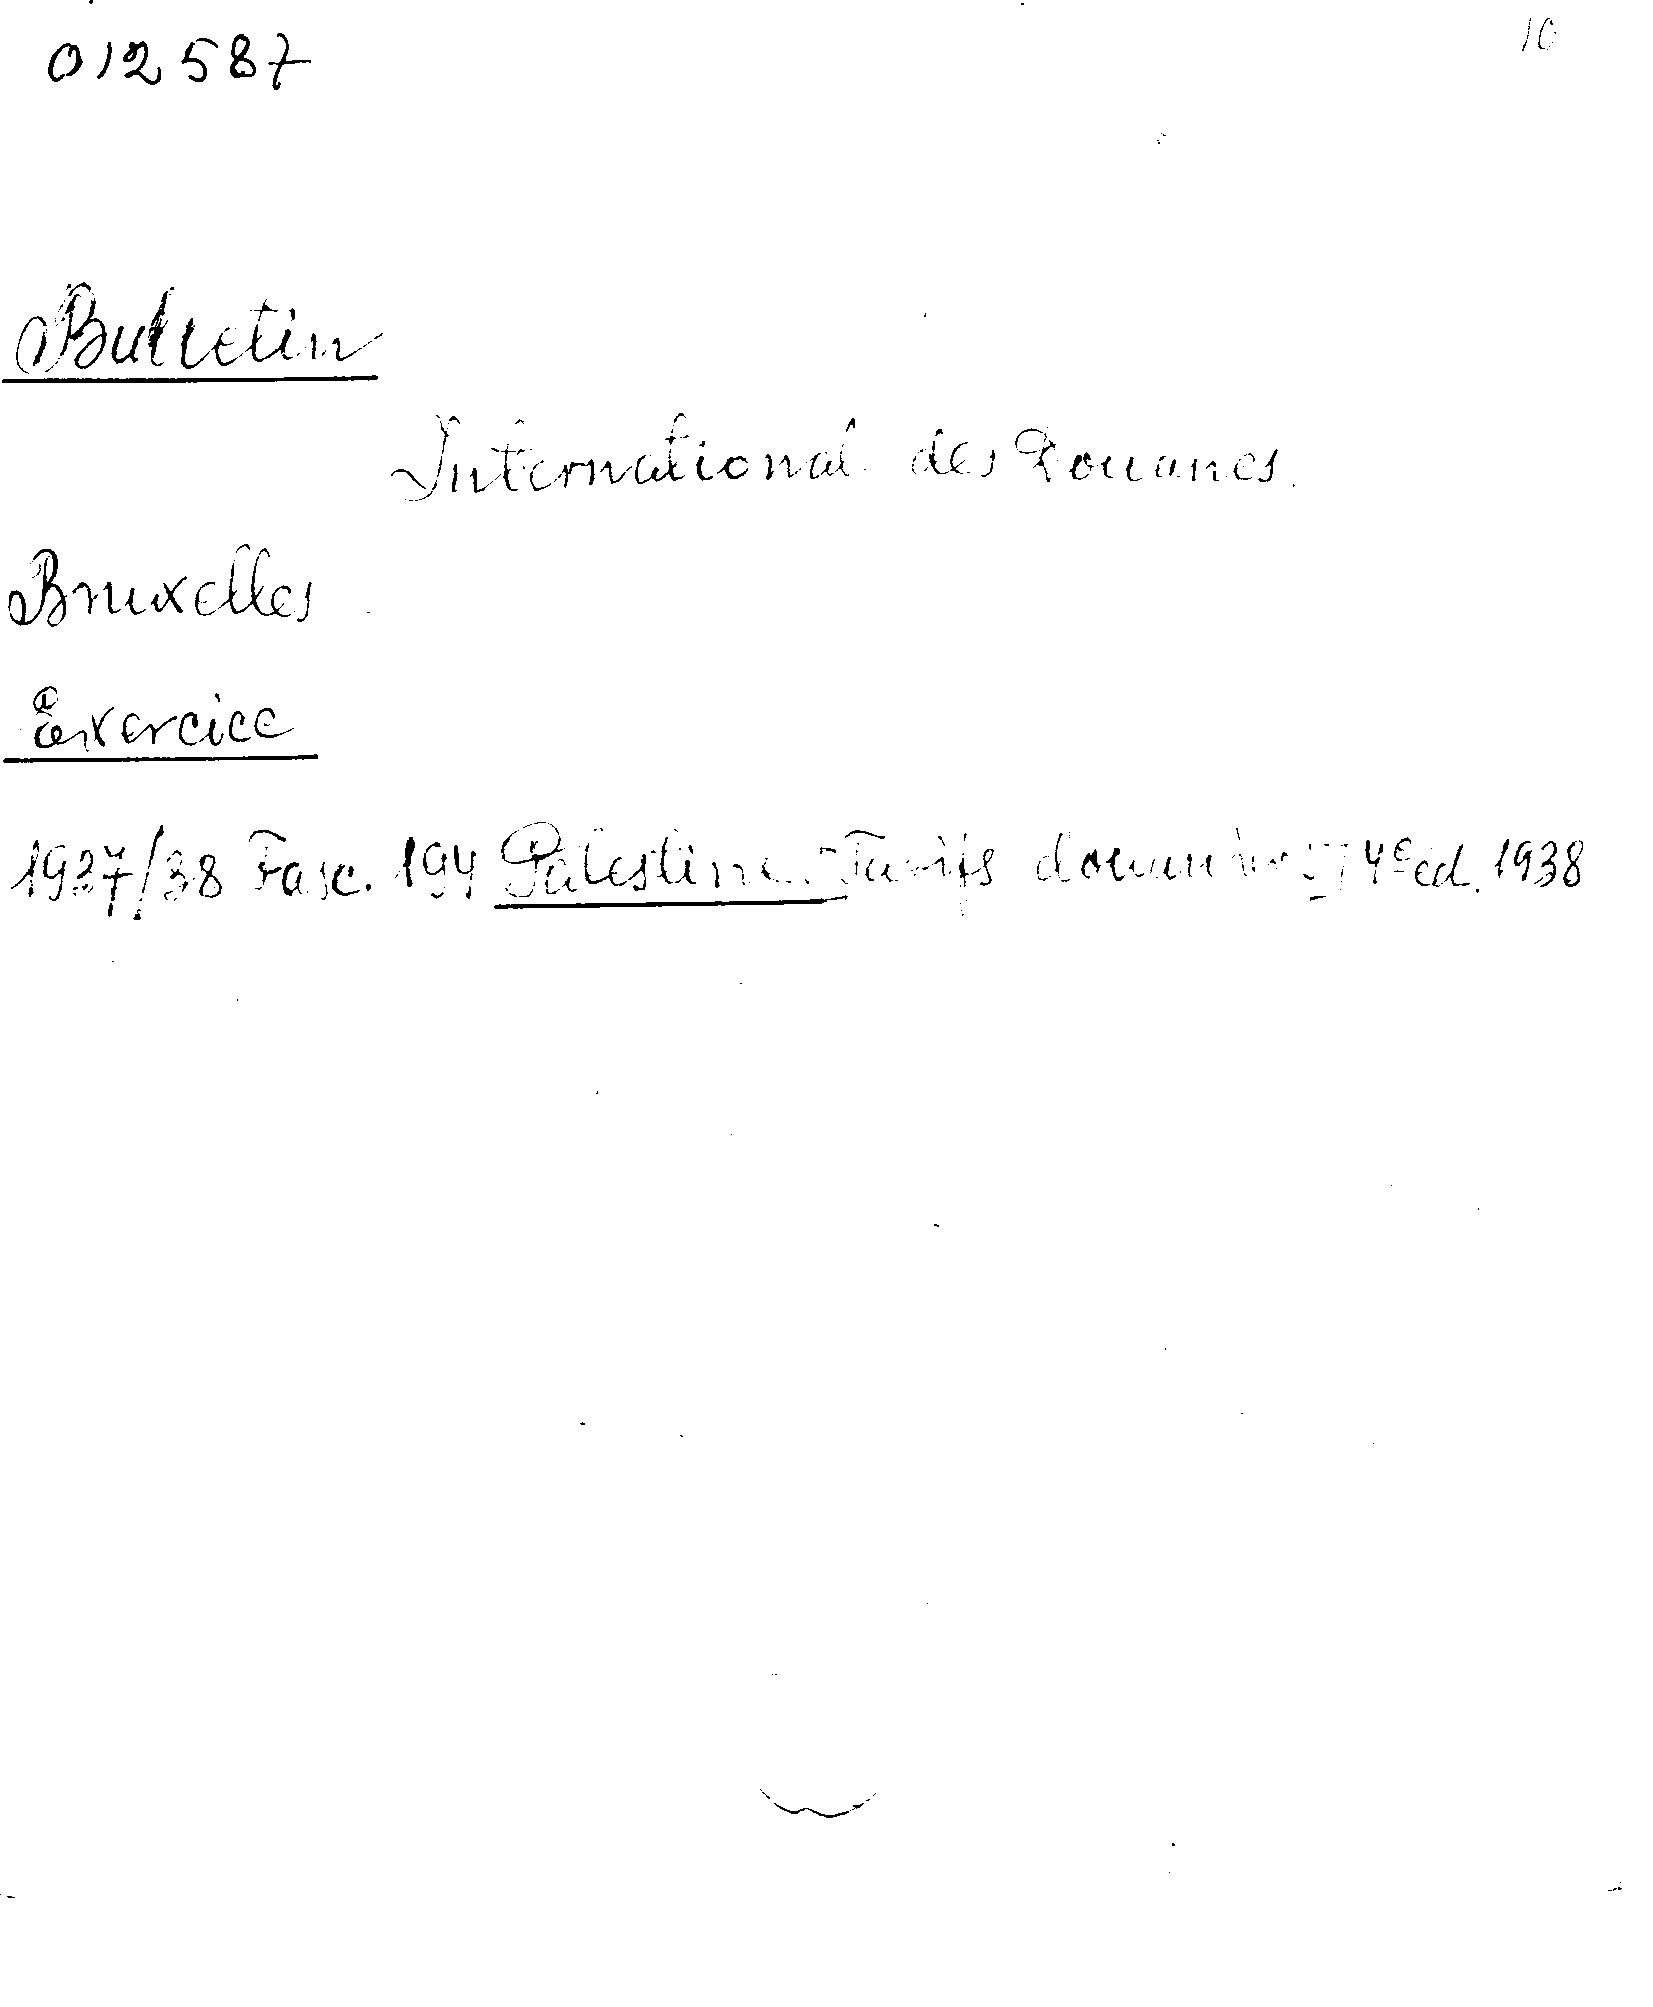 012587
10
Bulletin
International des Douanes.
Bruxelles
Exercice
1937/38 Fasc. 194 Palestine. Tarifs 4e éd. 1938